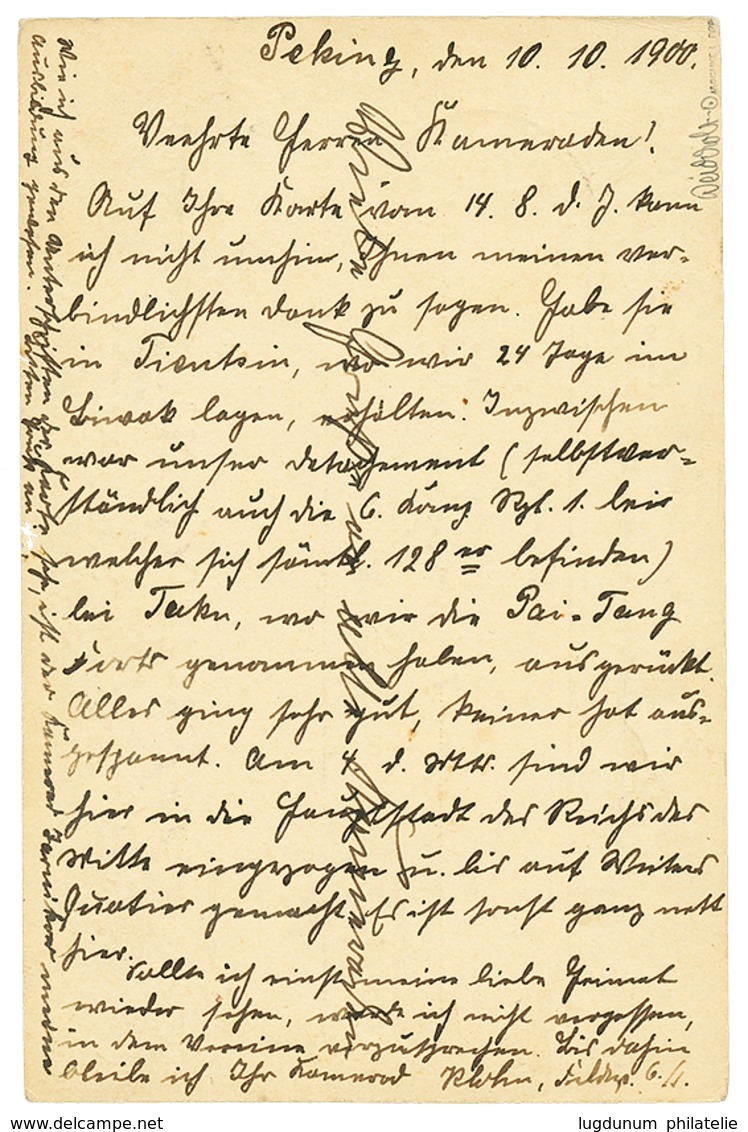 Peking, den 10. 10. 1900.
Veehrte Herren Kameraden!
Auf Ihre Karte vom 14. 8. d. J. kann
ich nicht umhin, Ihnen meinen ver-
bindlichsten Dank zu sagen. Habe sie
in Tientsin, wo wir 24 Tage im
Biwak lagen, erhalten. Inzwischen
war unser Detachement (selbstver-
ständlich auch die 6. Komp. Rgt. 1. bei
welcher sich sämtl. 128er befinden)
bei Taku, wo wir die Pai-Tang
Forts genommen haben, ausgerückt.
Alles ging sehr gut, keiner hat aus-
gespannt. Am 4. d. Mts. sind wir
hier in die Hauptstadt des Reichs der
Mitte eingezogen u. bis auf Weiteres
Quatier gemacht. Es ist sonst ganz nett
hier.
Sollte ich einst meine liebe Heimat
wieder sehen, werde ich nicht vergessen,
in dem Vereine vorzusprechen. Bis dahin
bleibe ich Ihr Kamerad 6./1.
Wie ich aus den Unterschriften der Karte sehe, ist der Kamerad meine
Ausbildung gewesen.
Viele Grüße an alle
lugdunum philatelie